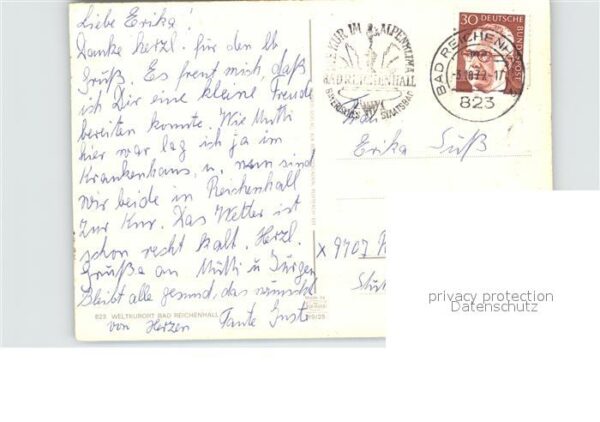 Liebe Erika!
Danke herzl. für den lb.
Gruß. Es freut mich, daß
ich Dir eine kleine Freude
bereiten konnte. Wie Mutti
hier war lag ich ja im
Krankenhaus, u. nun sind
wir beide in Reichenhall
zur Kur. Das Wetter ist
schon recht kalt. Herzl.
Grüße an Mutti u Jürgen
Bleibt alle gesund, das wünscht
von Herzen Tante
823 WELTKURORT BAD REICHENHALL
KUR IM ALPENKLIMA
BAD REICHENHALL
STAATSBAD
30 DEUTSCHE BUNDESPOST
BAD REICHENHALL
823
Erika Süß
privacy protection
Datenschutz